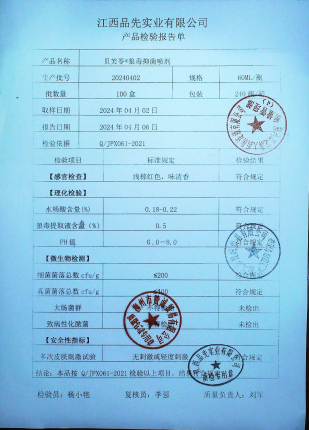 江西品先实业有限公司
产品检验报告单
产品名称 狼毒抑菌喷剂
生产批号 20240402 规格 60ML/瓶
批数量 100盒 包装
取样日期 2024年04月02日
报告日期 2024年04月06日
检验依据 Q/JPX061-2021
检验项目 标准规定 检验结果
【感官检查】 浅棕红色，味清香 符合规定
【理化检验】
水杨酸含量(%) 0.18-0.22 符合规定
狼毒提取液含量(%) 0.5 符合规定
PH值 6.0-8.0 符合规定
【微生物检测】
细菌菌落总数cfu/g ≤200 符合规定
真菌菌落总数cfu/g ≤100 符合规定
大肠菌群 不得检出 未检出
致病性化脓菌 未检出
【安全性指标】
多次皮肤刺激试验 无刺激或轻度刺激 符合规定
结论：本品按Q/JPX061-2021检验以上项目，结果
检验员：杨小艳 复核员：李强 质量负责人：刘军